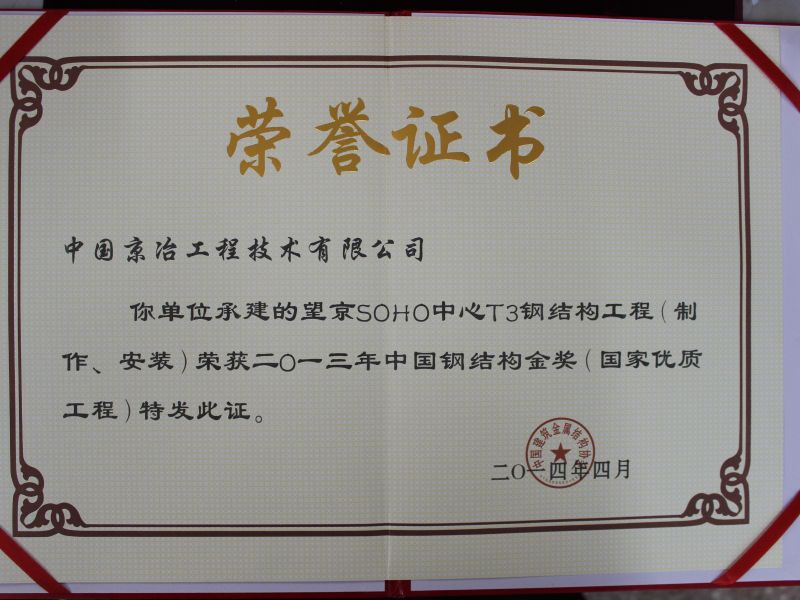 荣誉证书
中国京冶工程技术有限公司
你单位承建的望京SOHO中心T3钢结构工程(制
作、安装)荣获二O一三年中国钢结构金奖(国家优质
工程)特发此证。
中国建筑金属结构协会
二O一四年四月